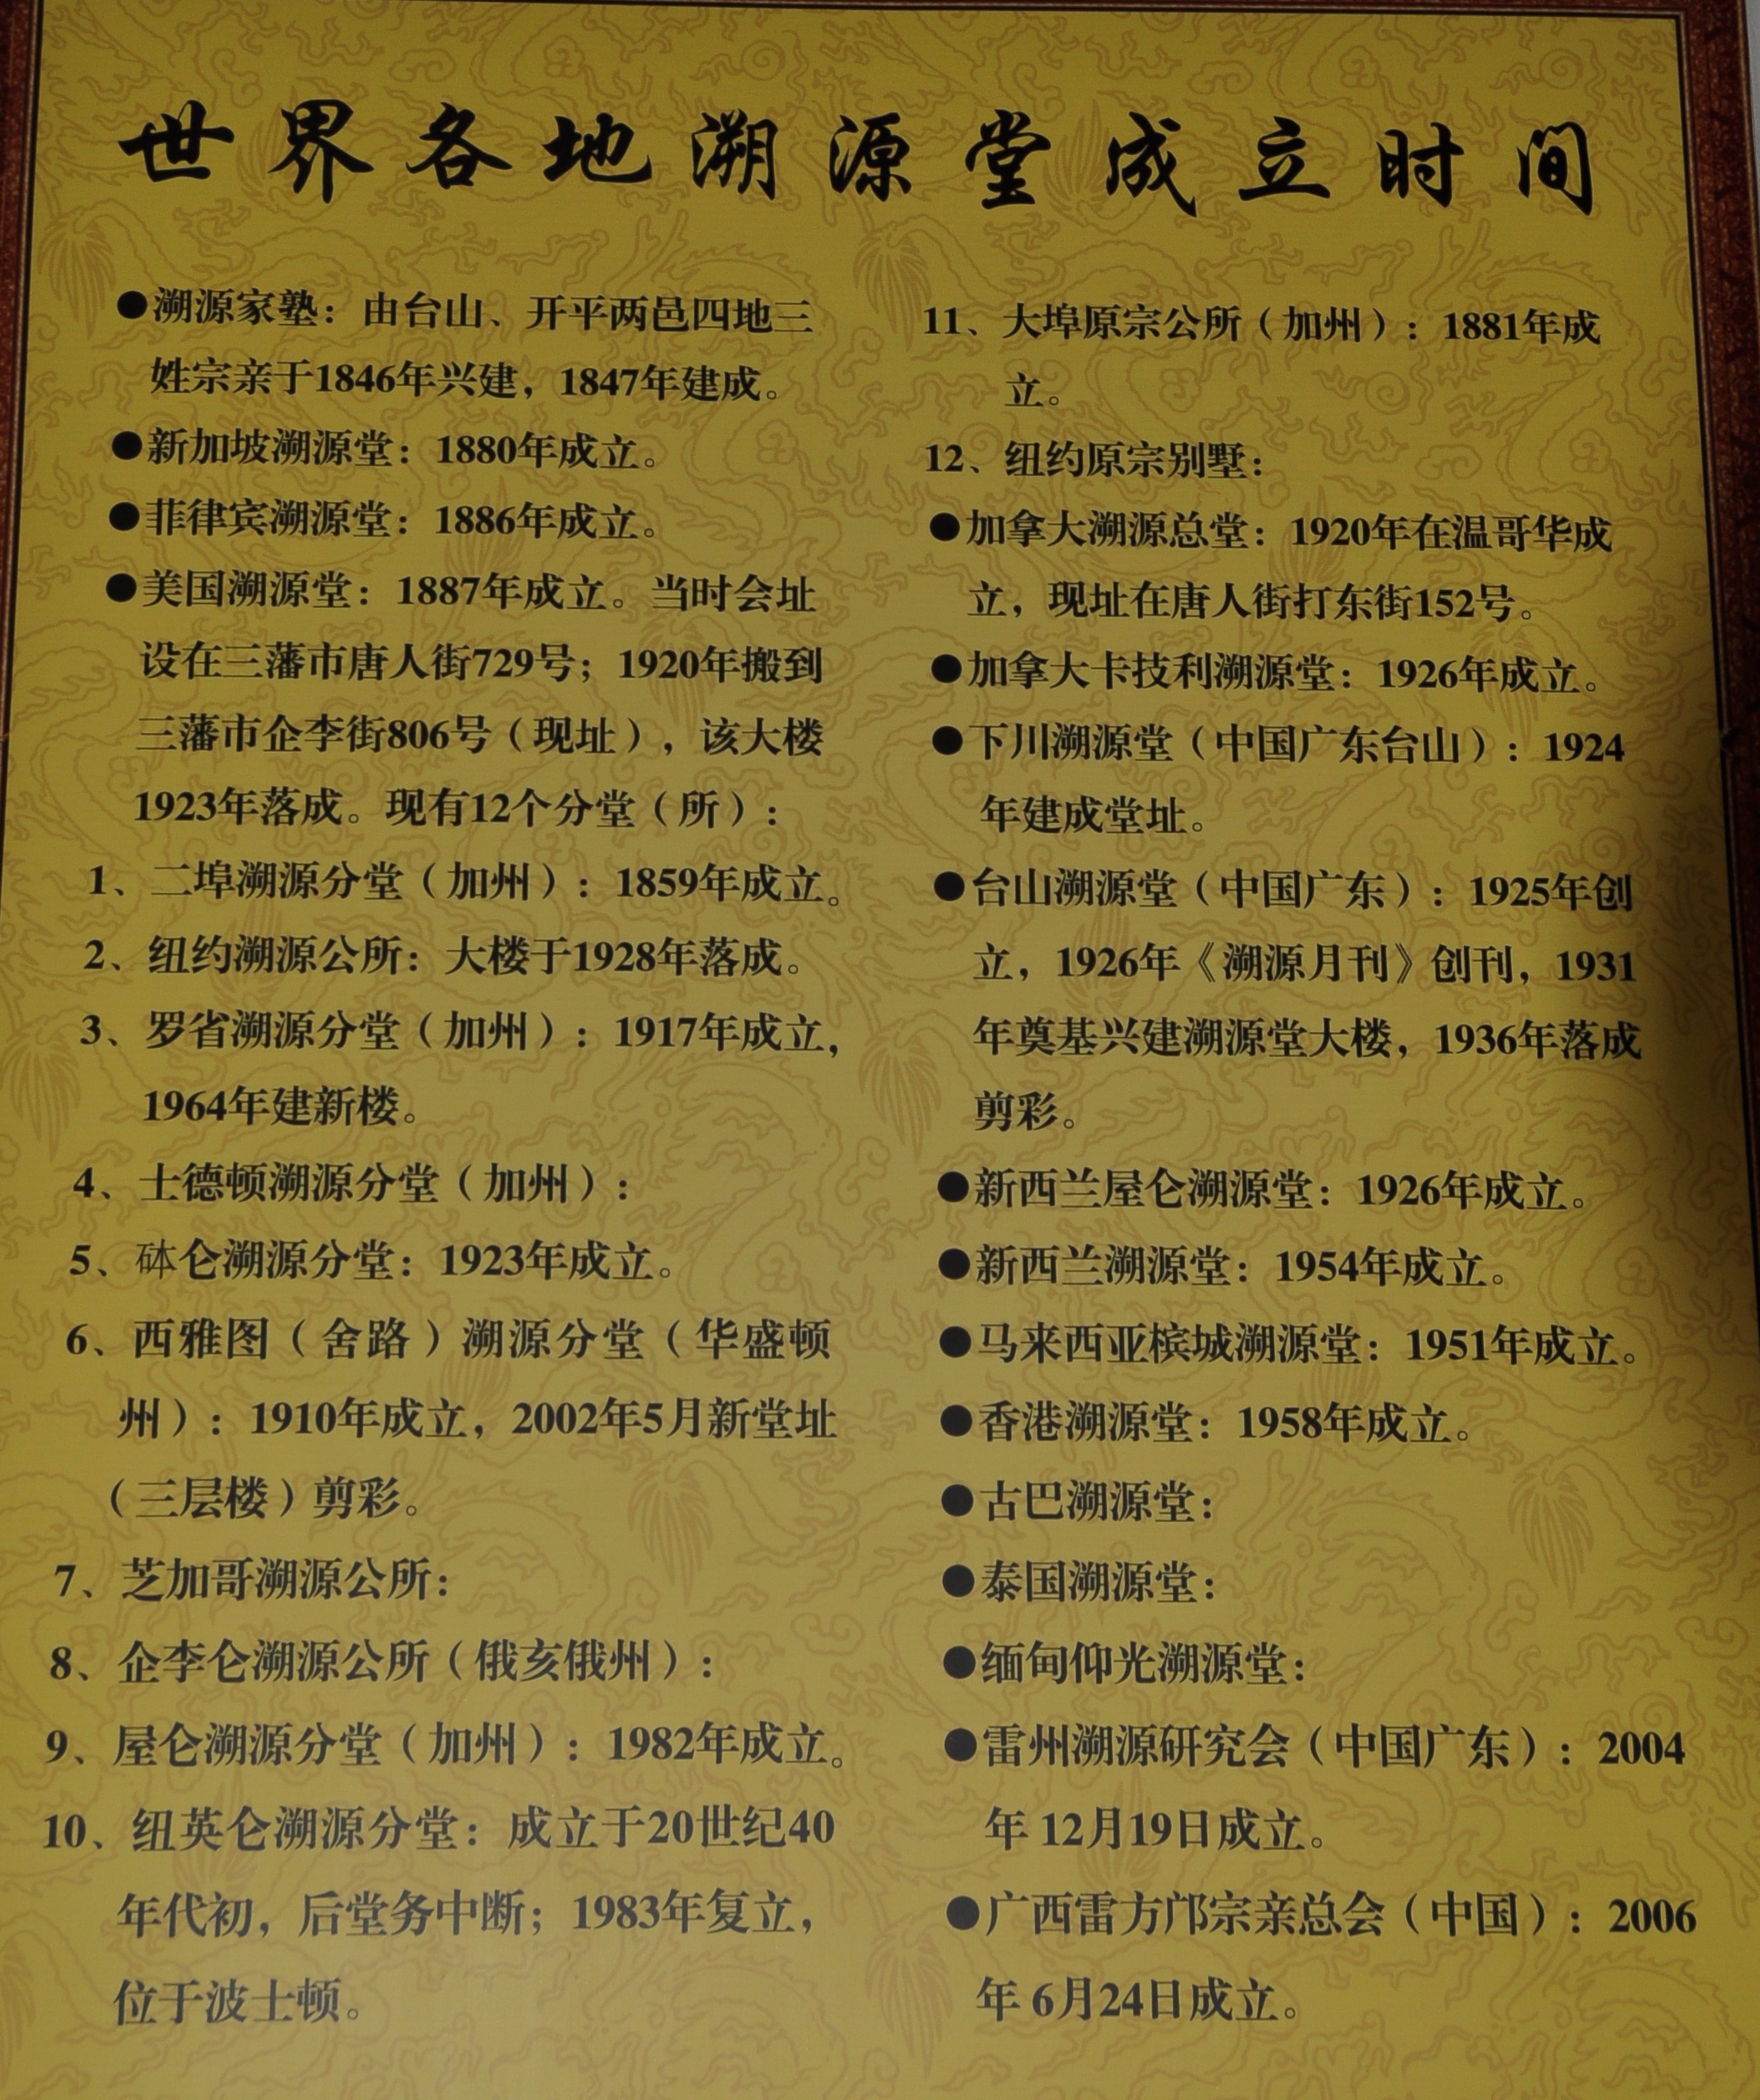 世界各地溯源堂成立时间
●溯源家塾：由台山、开平两邑四地三
姓宗亲于1846年兴建，1847年建成。
●新加坡溯源堂：1880年成立。
●菲律宾溯源堂：1886年成立。
●美国溯源堂：1887年成立。当时会址
设在三藩市唐人街729号；1920年搬到
三藩市企李街806号（现址），该大楼
1923年落成。现有12个分堂（所）：
1、二埠溯源分堂（加州）：1859年成立。
2、纽约溯源公所：大楼于1928年落成。
3、罗省溯源分堂（加州）：1917年成立，
1964年建新楼。
4、士德顿溯源分堂（加州）：
5、砵仑溯源分堂：1923年成立。
6、西雅图（舍路）溯源分堂（华盛顿
州）：1910年成立，2002年5月新堂址
（三层楼）剪彩。
7、芝加哥溯源公所：
8、企李仑溯源公所（俄亥俄州）：
9、屋仑溯源分堂（加州）：1982年成立。
10、纽英仑溯源分堂：成立于20世纪40
年代初，后堂务中断；1983年复立，
位于波士顿。
11、大埠原宗公所（加州）：1881年成
立。
12、纽约原宗别墅：
●加拿大溯源总堂：1920年在温哥华成
立，现址在唐人街打东街152号。
●加拿大卡技利溯源堂：1926年成立。
●下川溯源堂（中国广东台山）：1924
年建成堂址。
●台山溯源堂（中国广东）：1925年创
立，1926年《溯源月刊》创刊，1931
年奠基兴建溯源堂大楼，1936年落成
剪彩。
●新西兰屋仑溯源堂：1926年成立。
●新西兰溯源堂：1954年成立。
●马来西亚槟城溯源堂：1951年成立。
●香港溯源堂：1958年成立。
●古巴溯源堂：
●泰国溯源堂：
●缅甸仰光溯源堂：
●雷州溯源研究会（中国广东）：2004
年 12月19日成立。
●广西雷方邝宗亲总会（中国）：2006
年 6月24日成立。